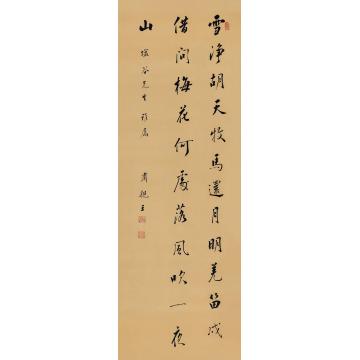 雪淨胡天牧馬還月明羌笛戍
借問梅花何處落風吹一夜
山
谷先生雅屬
肅親王